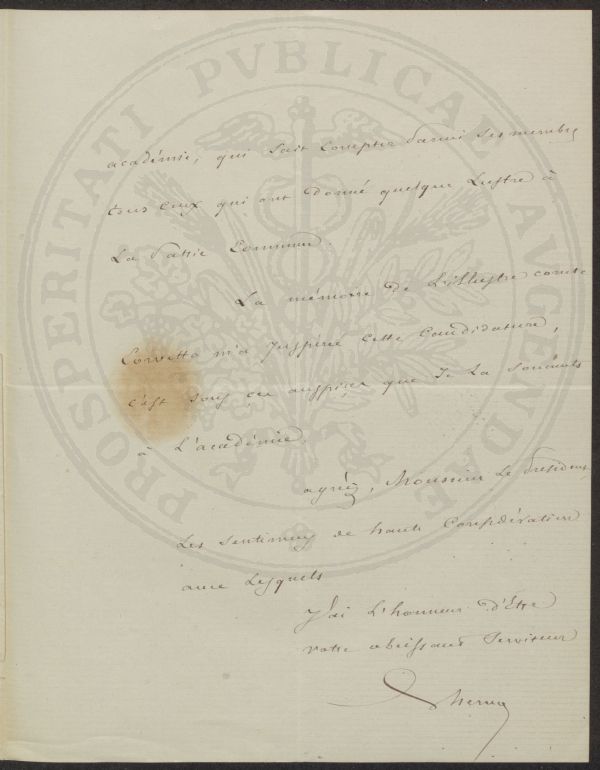 académie, qui sait compter parmi ses membres
tous ceux qui ont donné quelque Lustre à
La Patrie Commune.
La mémoire de L'illustre comte
Corvetto m'a Inspiré cette Candidature,
c'est sous ces auspices que Je La Soumets
à L'académie.
agréez, Monsieur Le President,
Les Sentimens de haute Considération
avec Lesquels
J'ai L'honneur d'Etre
votre obeissant Serviteur
PROSPERITATI PVBLICAE AVGENDAE